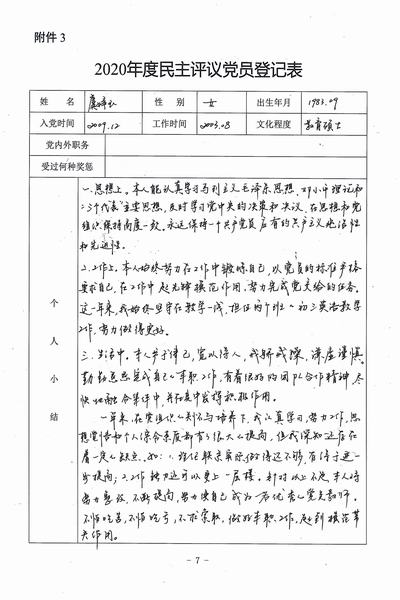 附件 3
2020年度民主评议党员登记表
姓 名 性 别 女 出生年月 1983.09
入党时间 2009.12 工作时间 2003.08 文化程度 教育硕士
党内外职务
受过何种奖惩
个人小结
一.思想上。本人能认真学习马列主义毛泽东思想、邓小平理论和
"三个代表"重要思想，及时学习党中央的决策和决议，在思想和党
组织保持高度一致。永远保持一个共产党员应有的共产主义先进性
和先进性。
2.工作上。本人始终努力在工作中锻炼自己，以党员的标准严格
要求自己，在工作中起先锋模范作用，努力完成党交给的任务。
这一年来，我始终坚守在教学一线，担任两个班初三英语教学
工作，努力做得更好。
三.生活中。本人严于律己，宽以待人，戒骄戒躁，谦虚谨慎，
勤勤恳恳完成自己本职工作，有着很好的团队合作精神，尽
快地融合集体中，并在集中发挥积极作用。
一年来，在党组织关怀与培养下，我认真学习，努力工作，思
想觉悟和个人综合素质都有了很大提高，但我深知还存在
着一定缺点。如：1.理论联系实际做得还不够，有待于进一
步提高；2.工作能力还可以更上一层楼。针对以上不足，本人将
努力克服，不断提高，努力使自己成为一名优秀党员教师。
不怕吃苦，不怕吃亏，不求索取，做好本职工作，起到模范带
头作用。
- 7 -